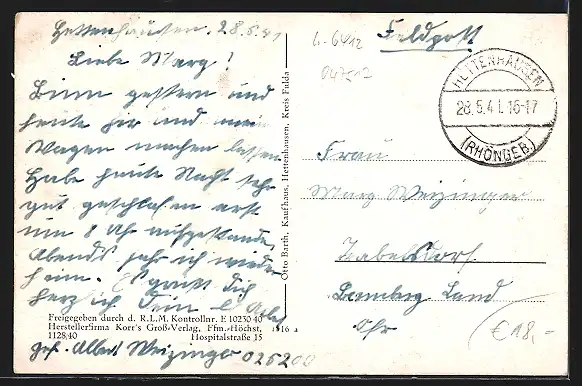 Hettenhausen, 28.5.41
Liebe Marg!
Binn gestern und
heute hir und mein
Wagen machen lassen
Habe heute Nacht sehr
gut geschlafen erst
um 8 Uhr aufgestanden,
Abends fahr ich wieder
heim. Es grüßt Dich
herzlich Dein lb
Freigegeben durch d. R.L.M. Kontrollnr. E 10230/40
Herstellerfirma Korr's Groß-Verlag, Ffm.-Höchst, 1516 a
1128/40 Hospitalstraße 15
Albert Weizinger 026200
Otto Barth, Kaufhaus, Hettenhausen, Kreis Fulda
L-6412
047512
Feldpost
HETTENHAUSEN
28.5.41.16-17
(RHÖNGEB.)
Frau
Marg Weizinger
Zabelsdorf
Bamberg Land
€18,-